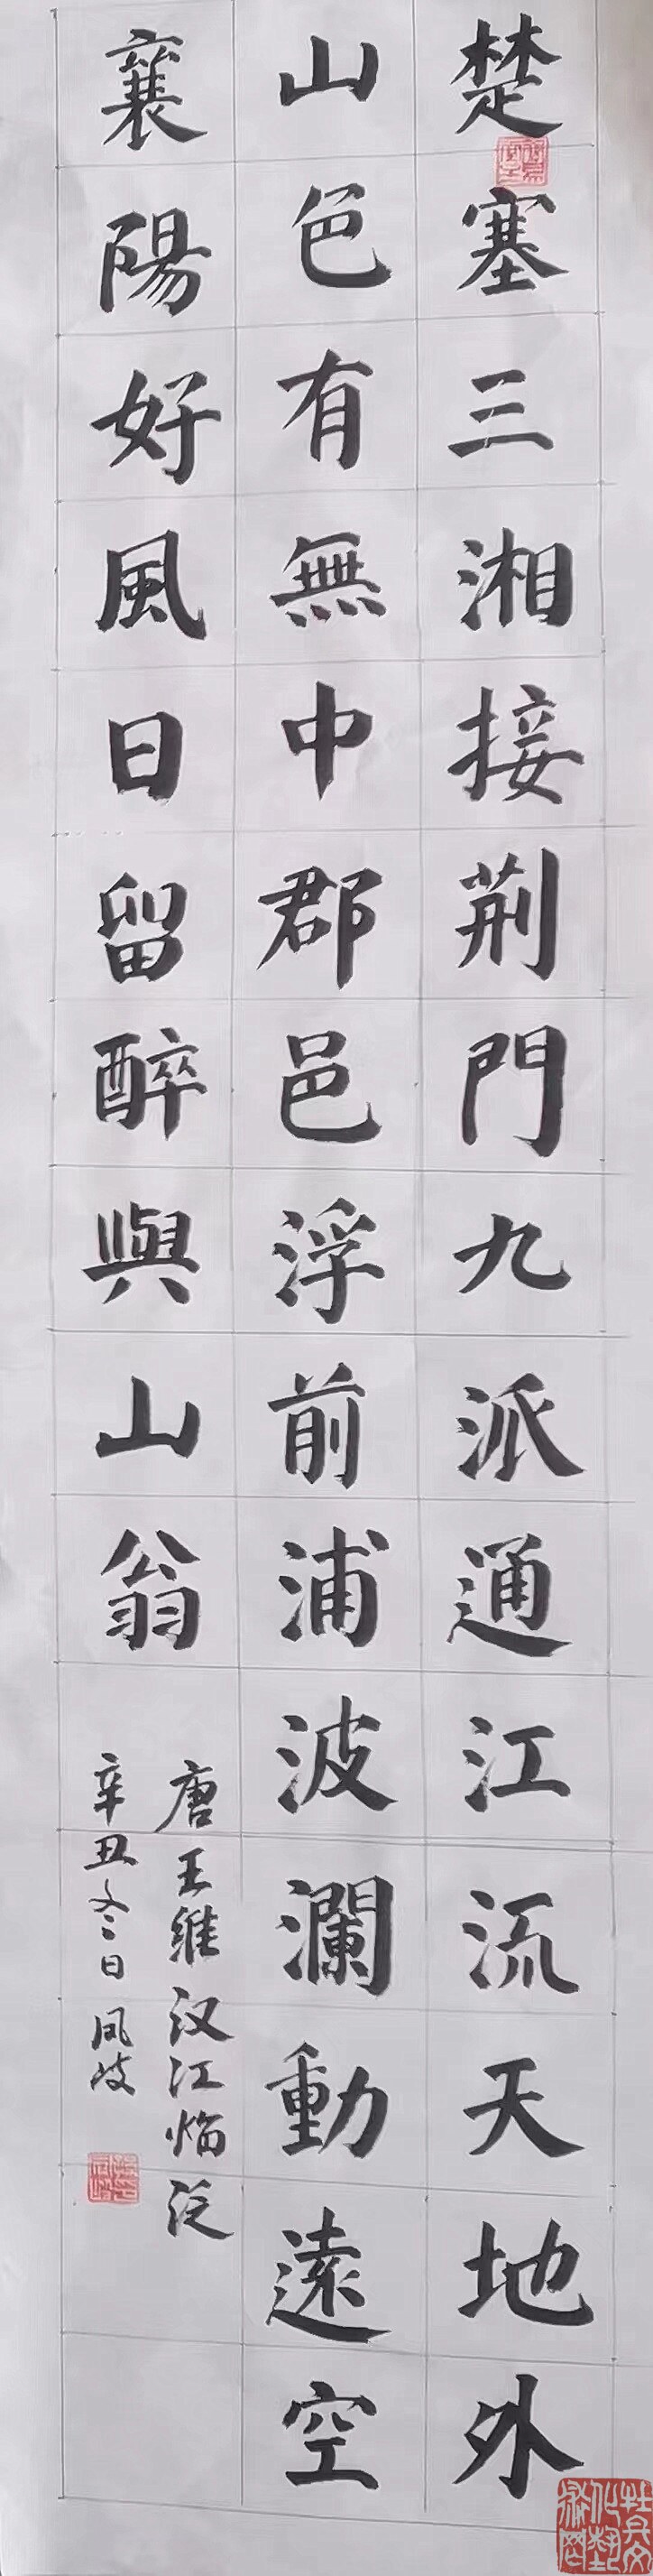 楚塞三湘接荆門九派通江流天地外
山色有無中郡邑浮前浦波瀾動遠空
襄陽好風日留醉與山翁
唐王維汉江临泛
辛丑冬日凤岐